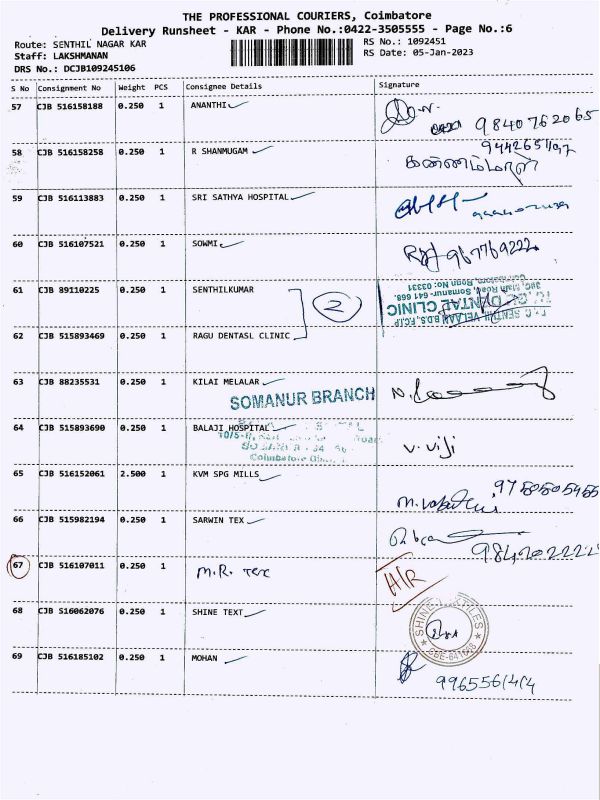 THE PROFESSIONAL COURIERS, Coimbatore
Delivery Runsheet - KAR - Phone No.:0422-3505555 - Page No.:6
Route: SENTHIL NAGAR KAR RS No.: 1092451
Staff: LAKSHMANAN RS Date: 05-Jan-2023
DRS No.: DCJB109245106
S No Consignment No Weight PCS Consignee Details Signature
57 CJB 516158188 0.250 1 ANANTHI
9840762065
58 CJB 516158258 0.250 1 R SHANMUGAM
கண்ணம்மாள்
59 CJB 516113883 0.250 1 SRI SATHYA HOSPITAL
60 CJB 516107521 0.250 1 SOWMI
967769222
61 CJB 89110225 0.250 1 SENTHILKUMAR
2
DENTAL CLINIC
62 CJB 515893469 0.250 1 RAGU DENTASL CLINIC
63 CJB 88235531 0.250 1 KILAI MELALAR
SOMANUR BRANCH
64 CJB 515893690 0.250 1 BALAJI HOSPITAL
V. Viji
65 CJB 516152061 2.500 1 KVM SPG MILLS
9750505455
66 CJB 515982194 0.250 1 SARWIN TEX
984202222
67 CJB 516107011 0.250 1 M.R. Tex H/R
68 CJB 516062076 0.250 1 SHINE TEXT
69 CJB 516185102 0.250 1 MOHAN
9965561414